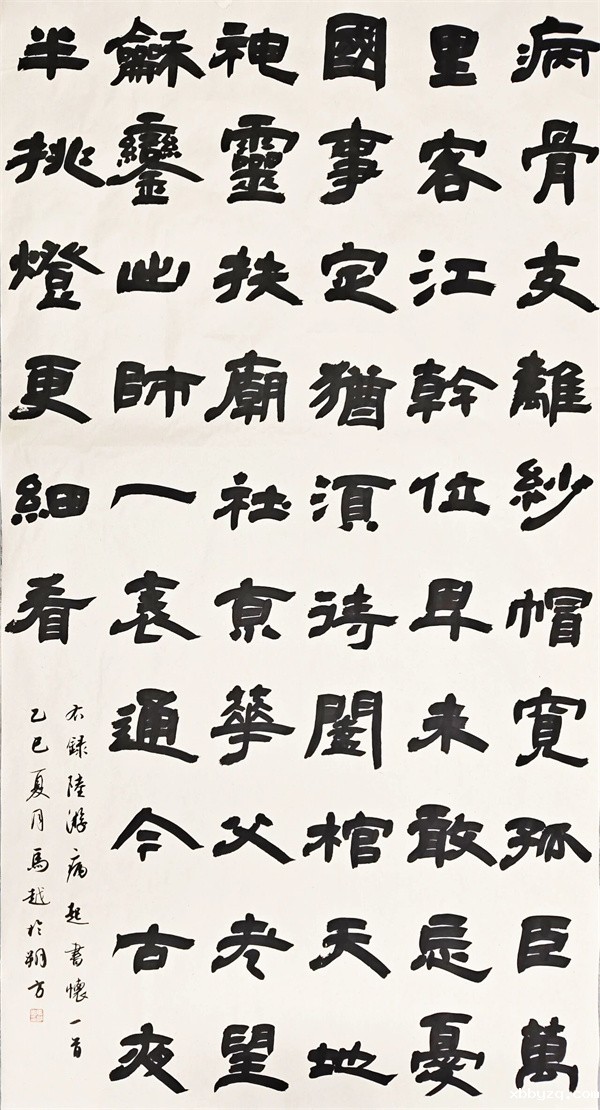 病骨支離紗帽寬孤臣萬
里客江幹位卑未敢忘憂
國事定猶須待闔棺天地
神靈扶廟社京華父老望
龢鑾出師一表通今古夜
半挑燈更細看
右錄陸游病起書懷一首
乙巳夏月馬越於朔方
xbbyzq.com